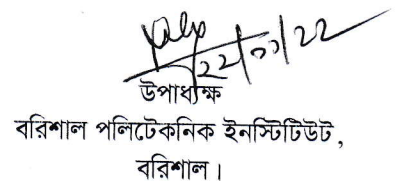 উপাধ্যক্ষ
বরিশাল পলিটেকনিক ইনস্টিটিউট,
বরিশাল।